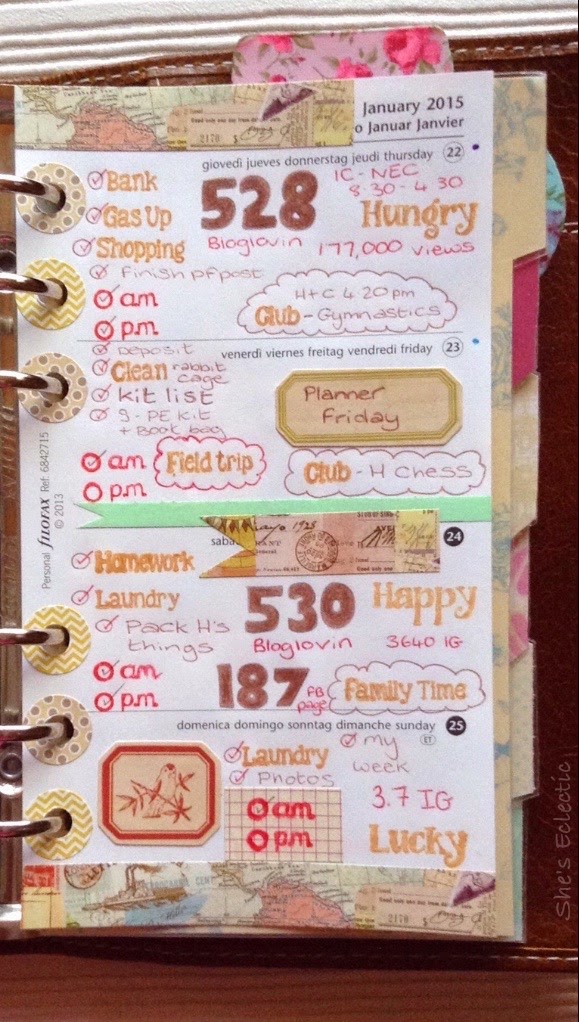 January 2015
o Januar Janvier
giovedì jueves donnerstag jeudi thursday 22
Bank
528
IC - NEC
8.30 - 4.30
Gas Up
Hungry
Shopping
Bloglovin 177,000 views
Finish pf post
am
H+C 4.20pm
Club - Gymnastics
pm
Deposit
venerdì viernes freitag vendredi friday 23
Clean rabbit cage
kit list
Planner
Friday
S - PE kit
+ Book bag
am
Field trip
Club - H Chess
pm
Personal filofax Ref: 6842715
© 2013
1925
saba
24
Homework
Laundry
530
Happy
Pack H's
things
Bloglovin
3640 IG
am
187 FB page
Family Time
pm
domenica domingo sonntag dimanche sunday 25
Laundry
my
week
ET
Photos
am
3.7 IG
pm
Lucky
2170
She's Eclectic